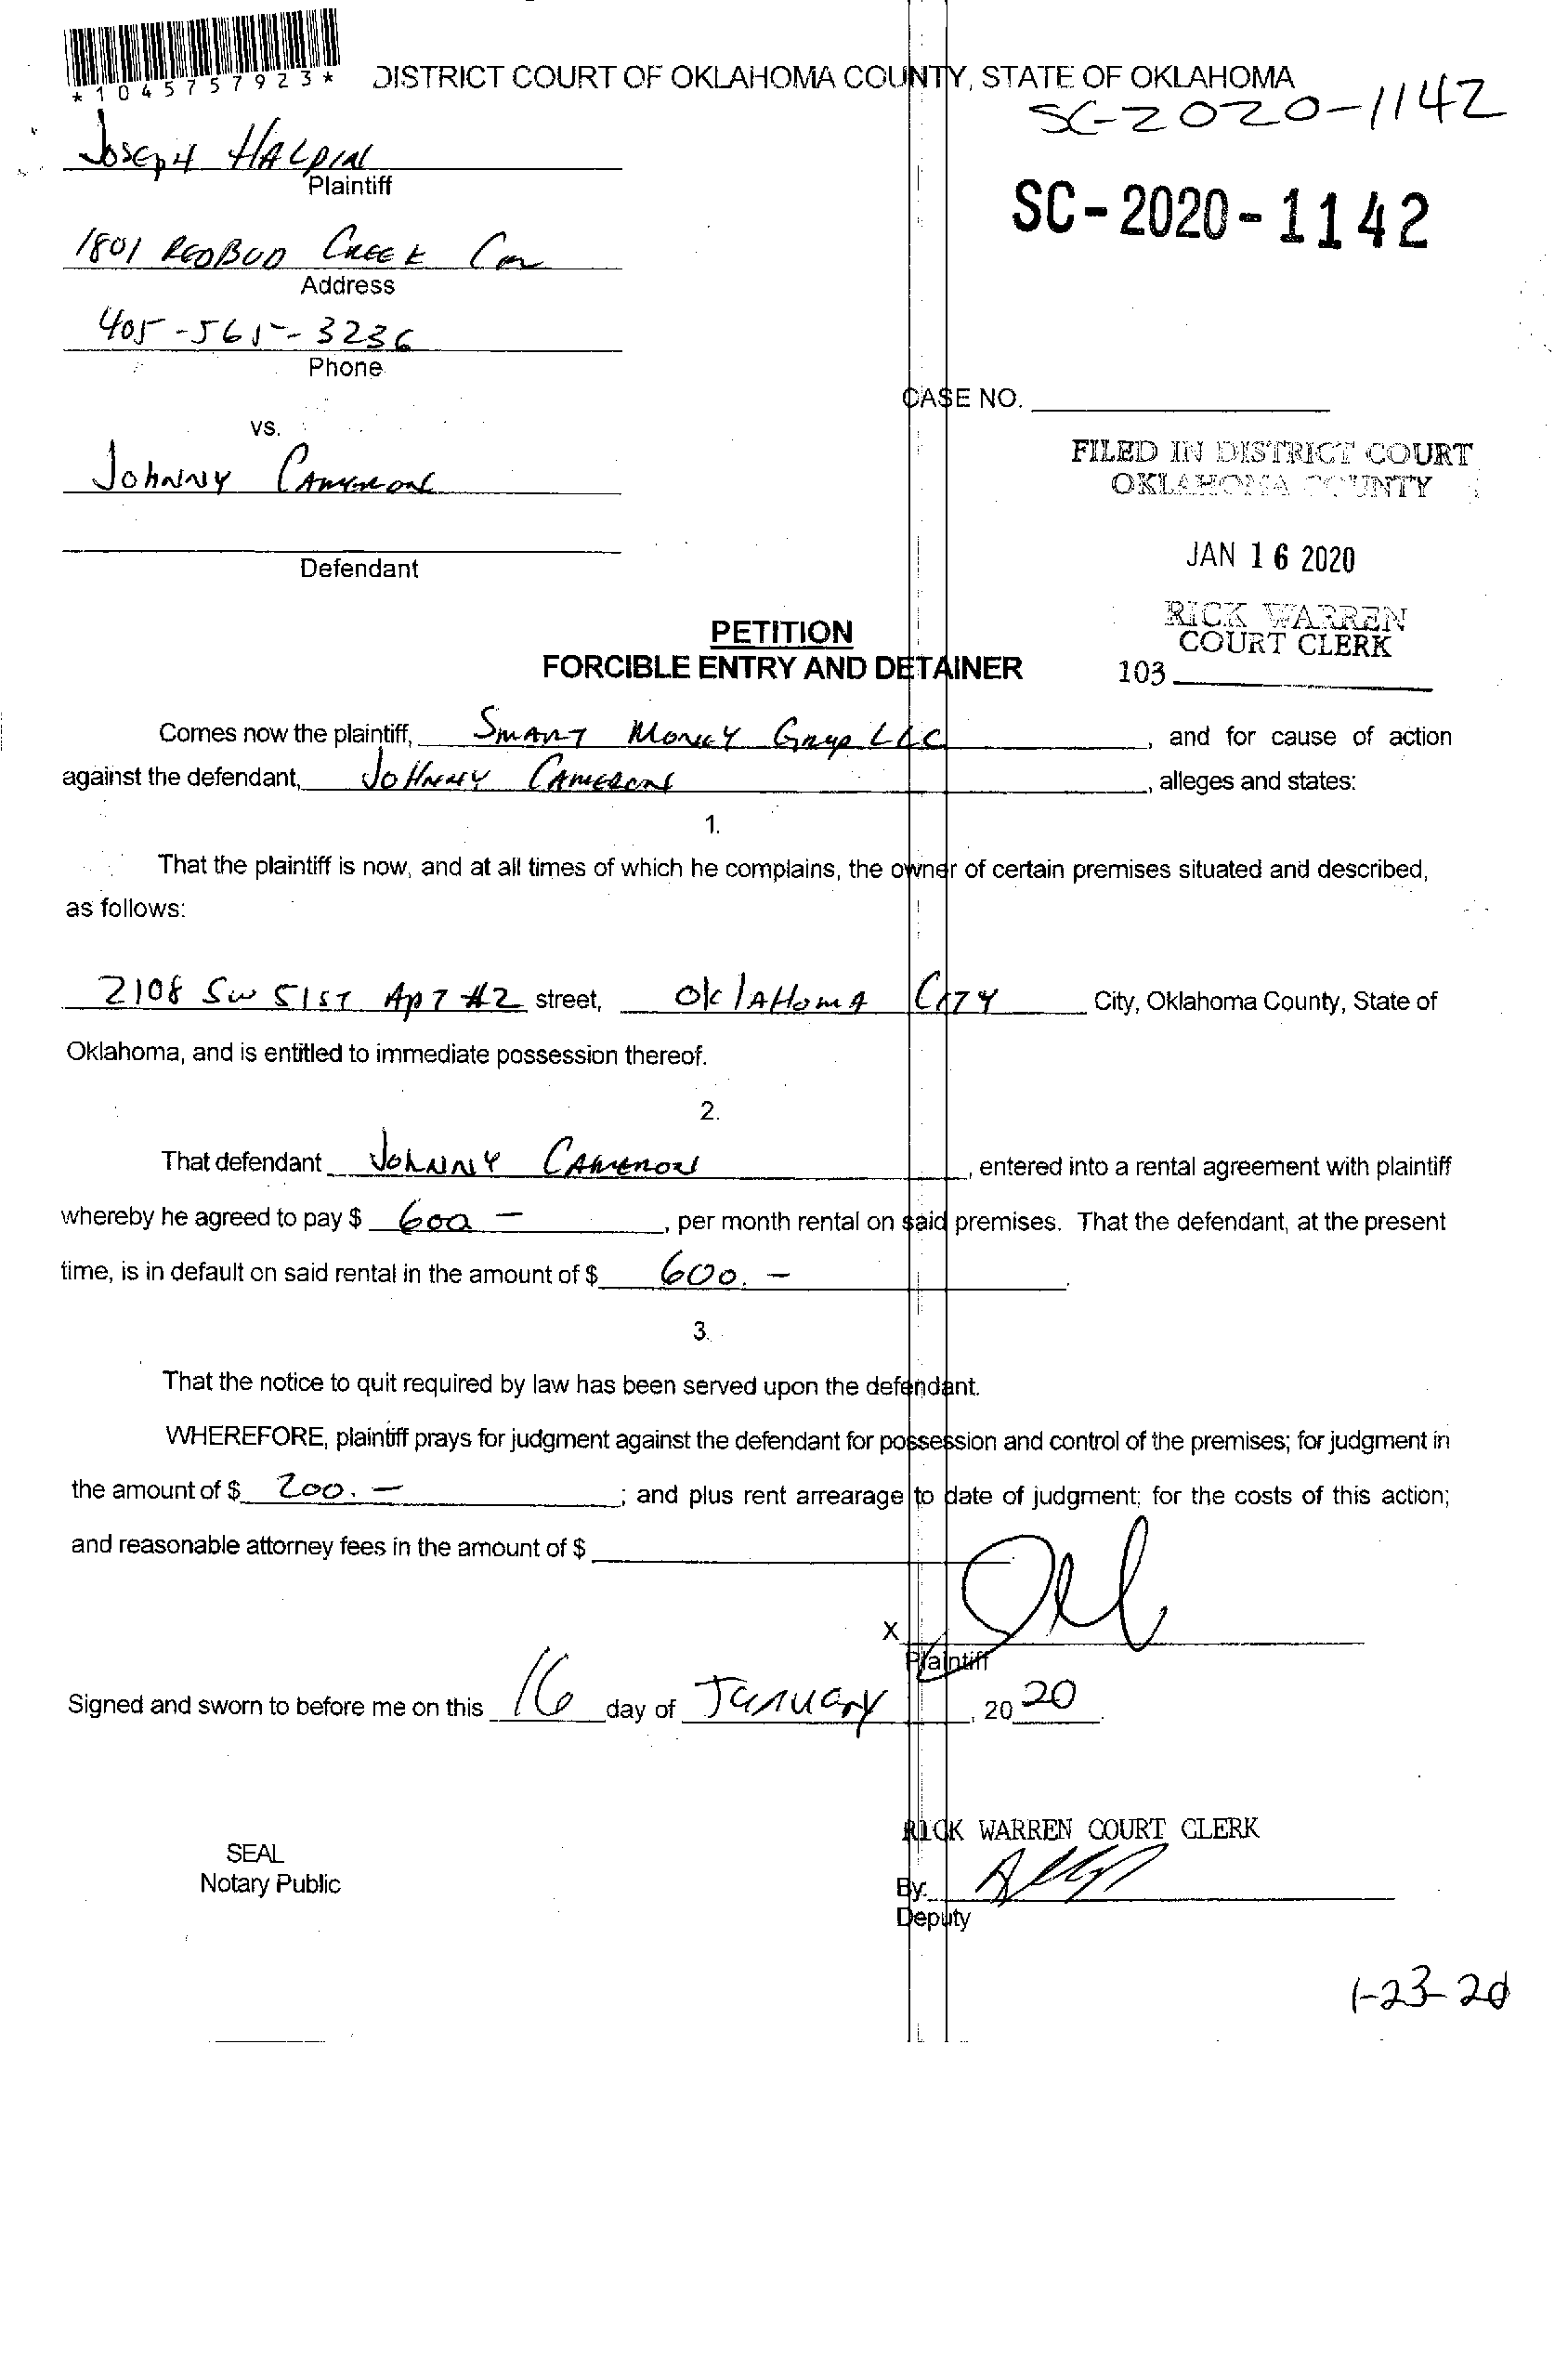 *1045757923*
DISTRICT COURT OF OKLAHOMA COUNTY, STATE OF OKLAHOMA
SC-2020-1142
Joseph Halpin
Plaintiff
SC-2020-1142
1801 RedBud Creek
Address
405-565-3236
Phone
CASE NO.
vs.
FILED IN DISTRICT COURT
OKLAHOMA COUNTY
Johnny Cameron
JAN 16 2020
Defendant
RICK WARREN
COURT CLERK
103
PETITION
FORCIBLE ENTRY AND DETAINER
Comes now the plaintiff, Smart Money Group LLC, and for cause of action
against the defendant, Johnny Cameron, alleges and states:
1.
That the plaintiff is now, and at all times of which he complains, the owner of certain premises situated and described,
as follows:
2108 SW 51ST APT #2 street, Oklahoma City City, Oklahoma County, State of
Oklahoma, and is entitled to immediate possession thereof.
2.
That defendant Johnny Cameron, entered into a rental agreement with plaintiff
whereby he agreed to pay $ 600 -, per month rental on said premises. That the defendant, at the present
time, is in default on said rental in the amount of $ 600. -.
3.
That the notice to quit required by law has been served upon the defendant.
WHEREFORE, plaintiff prays for judgment against the defendant for possession and control of the premises; for judgment in
the amount of $ 200. -; and plus rent arrearage to date of judgment; for the costs of this action;
and reasonable attorney fees in the amount of $
X
Plaintiff
Signed and sworn to before me on this 16 day of January, 2020.
RICK WARREN COURT CLERK
SEAL
Notary Public
By:
Deputy
1-23-20